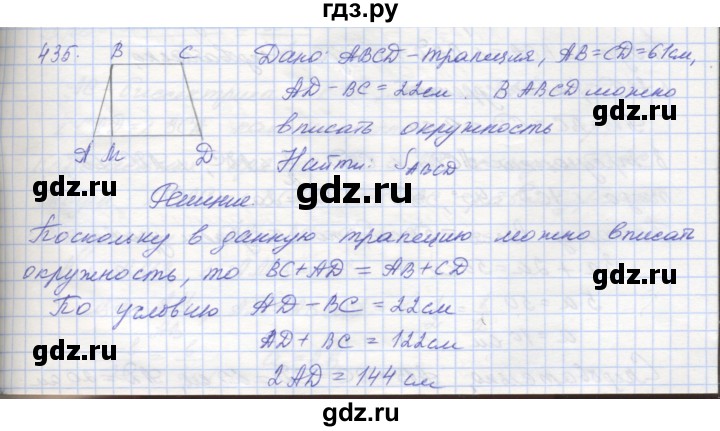 гдз.ру
435. B C Дано: ABCD - трапеция, AB = CD = 61см,
AD - BC = 22см. В ABCD можно
gdz.ru gdz.ru
вписать окружность
A M D Найти: S_ABCD
gdz.ru
Решение.
Поскольку в данную трапецию можно вписать
окружность, то BC + AD = AB + CD
По условию AD - BC = 22см
gdz.ru gdz.ru
AD + BC = 122см
2AD = 144 см
gdz.ru
gdz.ru